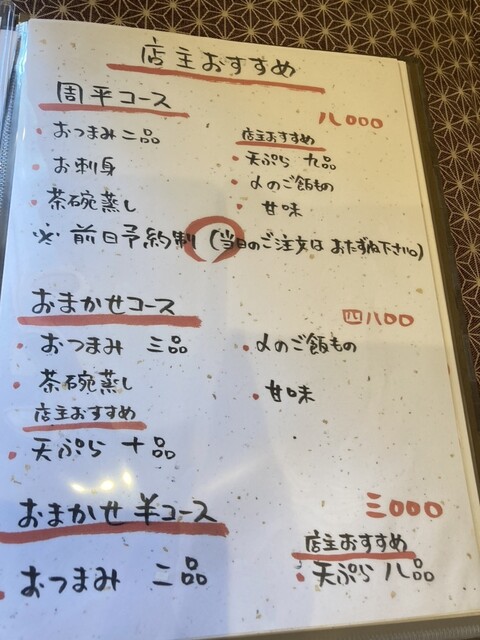 店主おすすめ
周平コース
八〇〇〇
おつまみ二品
お刺身
茶碗蒸し
店主おすすめ
天ぷら 九品
〆のご飯もの
甘味
※ 前日予約制 (当日のご注文は おたずね下さい。)
おまかせコース
四八〇〇
おつまみ 三品
茶碗蒸し
店主おすすめ
天ぷら 十品
〆のご飯もの
甘味
おまかせ 半コース
三〇〇〇
おつまみ 二品
店主おすすめ
天ぷら 八品